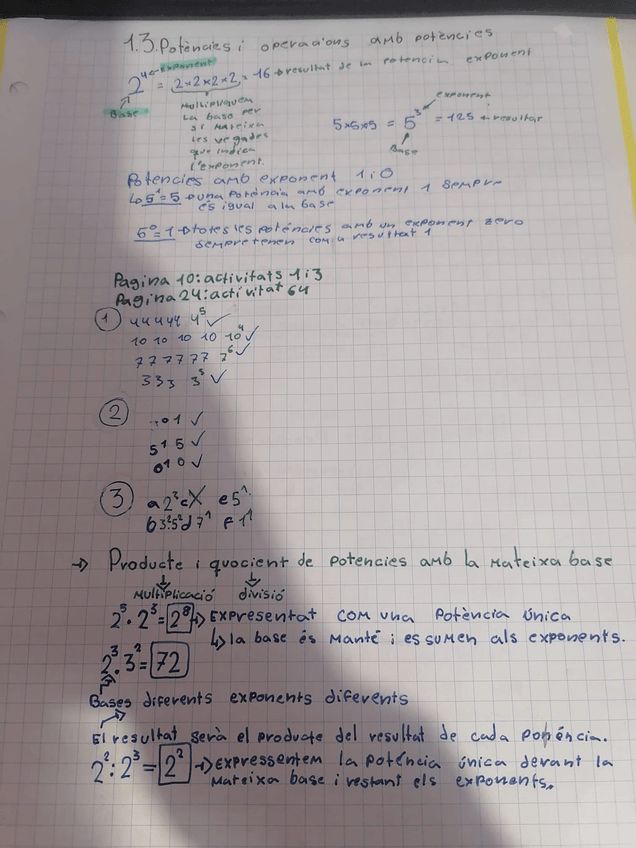 1.3. Potències i operacions amb potències
exponent
2⁴ = 2×2×2×2 = 16 → resultat de la potencia exponent
Base
Multipliquem
la base per
si mateixa
les vegades
que indica
l'exponent.
exponent
5×5×5 = 5³ = 125 → resultat
Base
Potencies amb exponent 1 i 0
↳ 5¹=5 → una potència amb exponent 1 sempre
és igual a la base
5⁰=1 → totes les poténcies amb un exponent zero
sempre tenen com a resultat 1
Pagina 10: activitats 1 i 3
Pagina 24: activitat 64
① 4 4 4 4 4 4⁵ ✓
10 10 10 10 10⁴ ✓
7 7 7 7 7 7 7⁶ ✓
3 3 3 3³ ✓
②
0 1 ✓
5¹ 5 ✓
0¹ 0 ✓
③ a 2³ c X e 5¹
b 3²5² d 7¹ f 1¹
→ Producte i quocient de potencies amb la mateixa base
Multiplicació divisió
2⁵ · 2³ = 2⁸ → Expresentat com una potència única
↳ la base és manté i es sumen als exponents.
2³ · 3² = 72
Bases diferents exponents diferents
El resultat serà el producte del resultat de cada poténcia.
2² : 2³ = 2² → Expressentem la poténcia única devant la
mateixa base i restant els exponents.